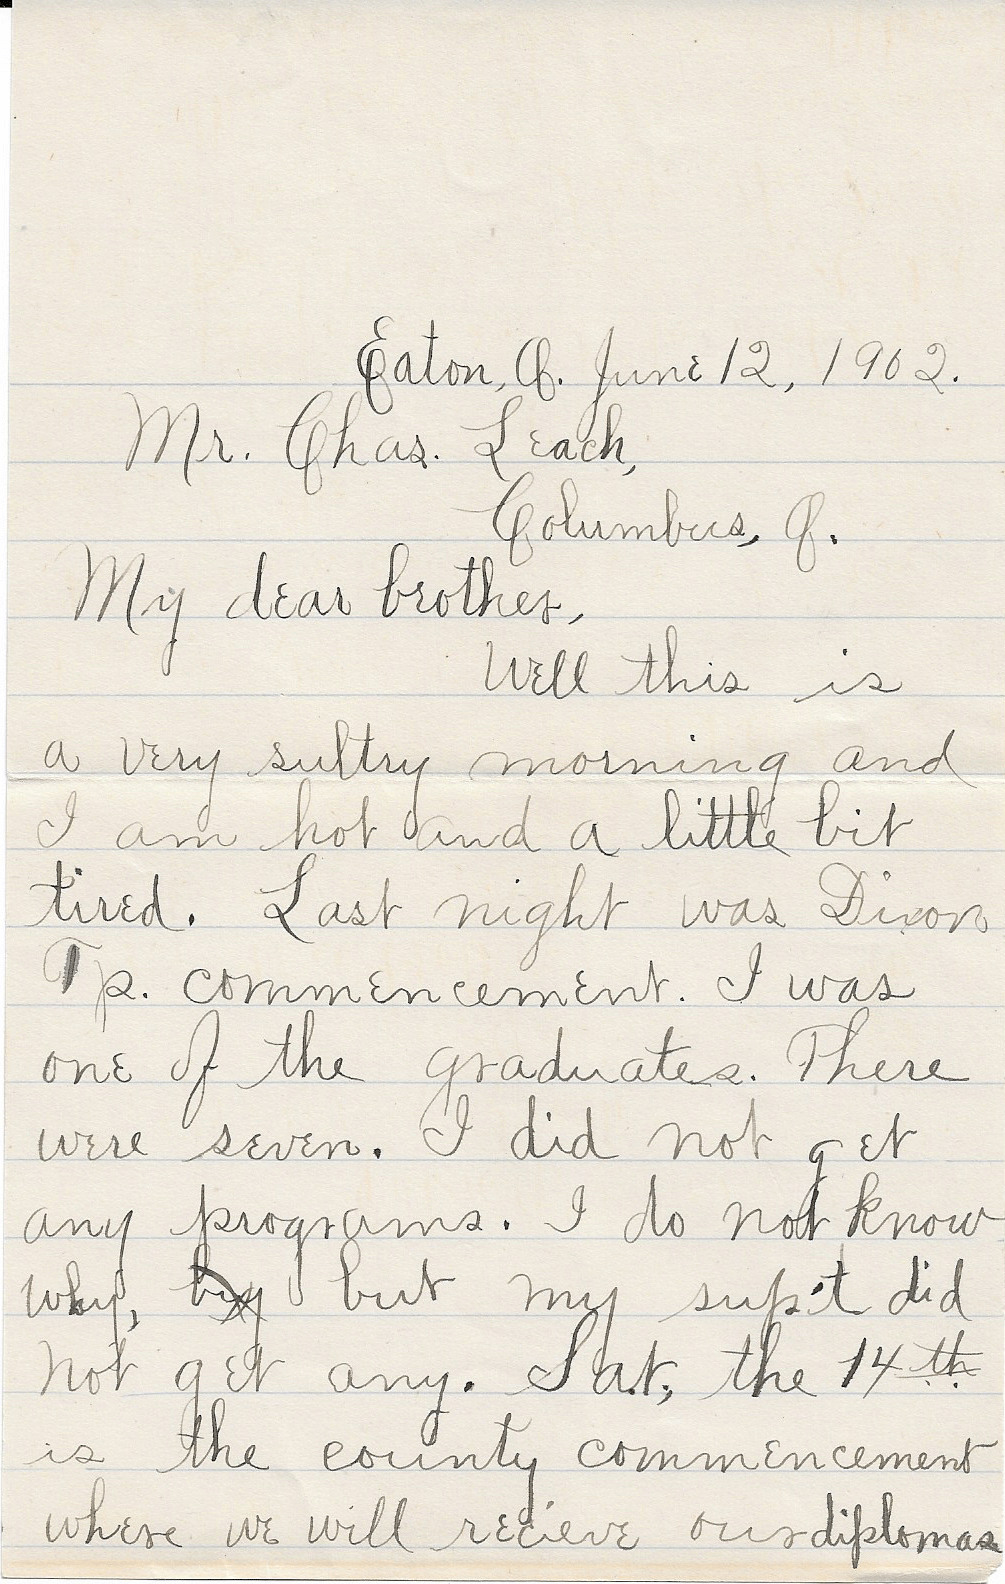 Eaton, O. June 12, 1902.
Mr. Chas. Leach,
Columbus, O.
My dear brother,
Well this is
a very sultry morning and
I am hot and a little bit
tired. Last night was Dixon
Tp. commencement. I was
one of the graduates. There
were seven. I did not get
any programs. I do not know
why, by but my sup't did
not get any. Sat, the 14th
is the county commencement
where we will recieve our diplomas